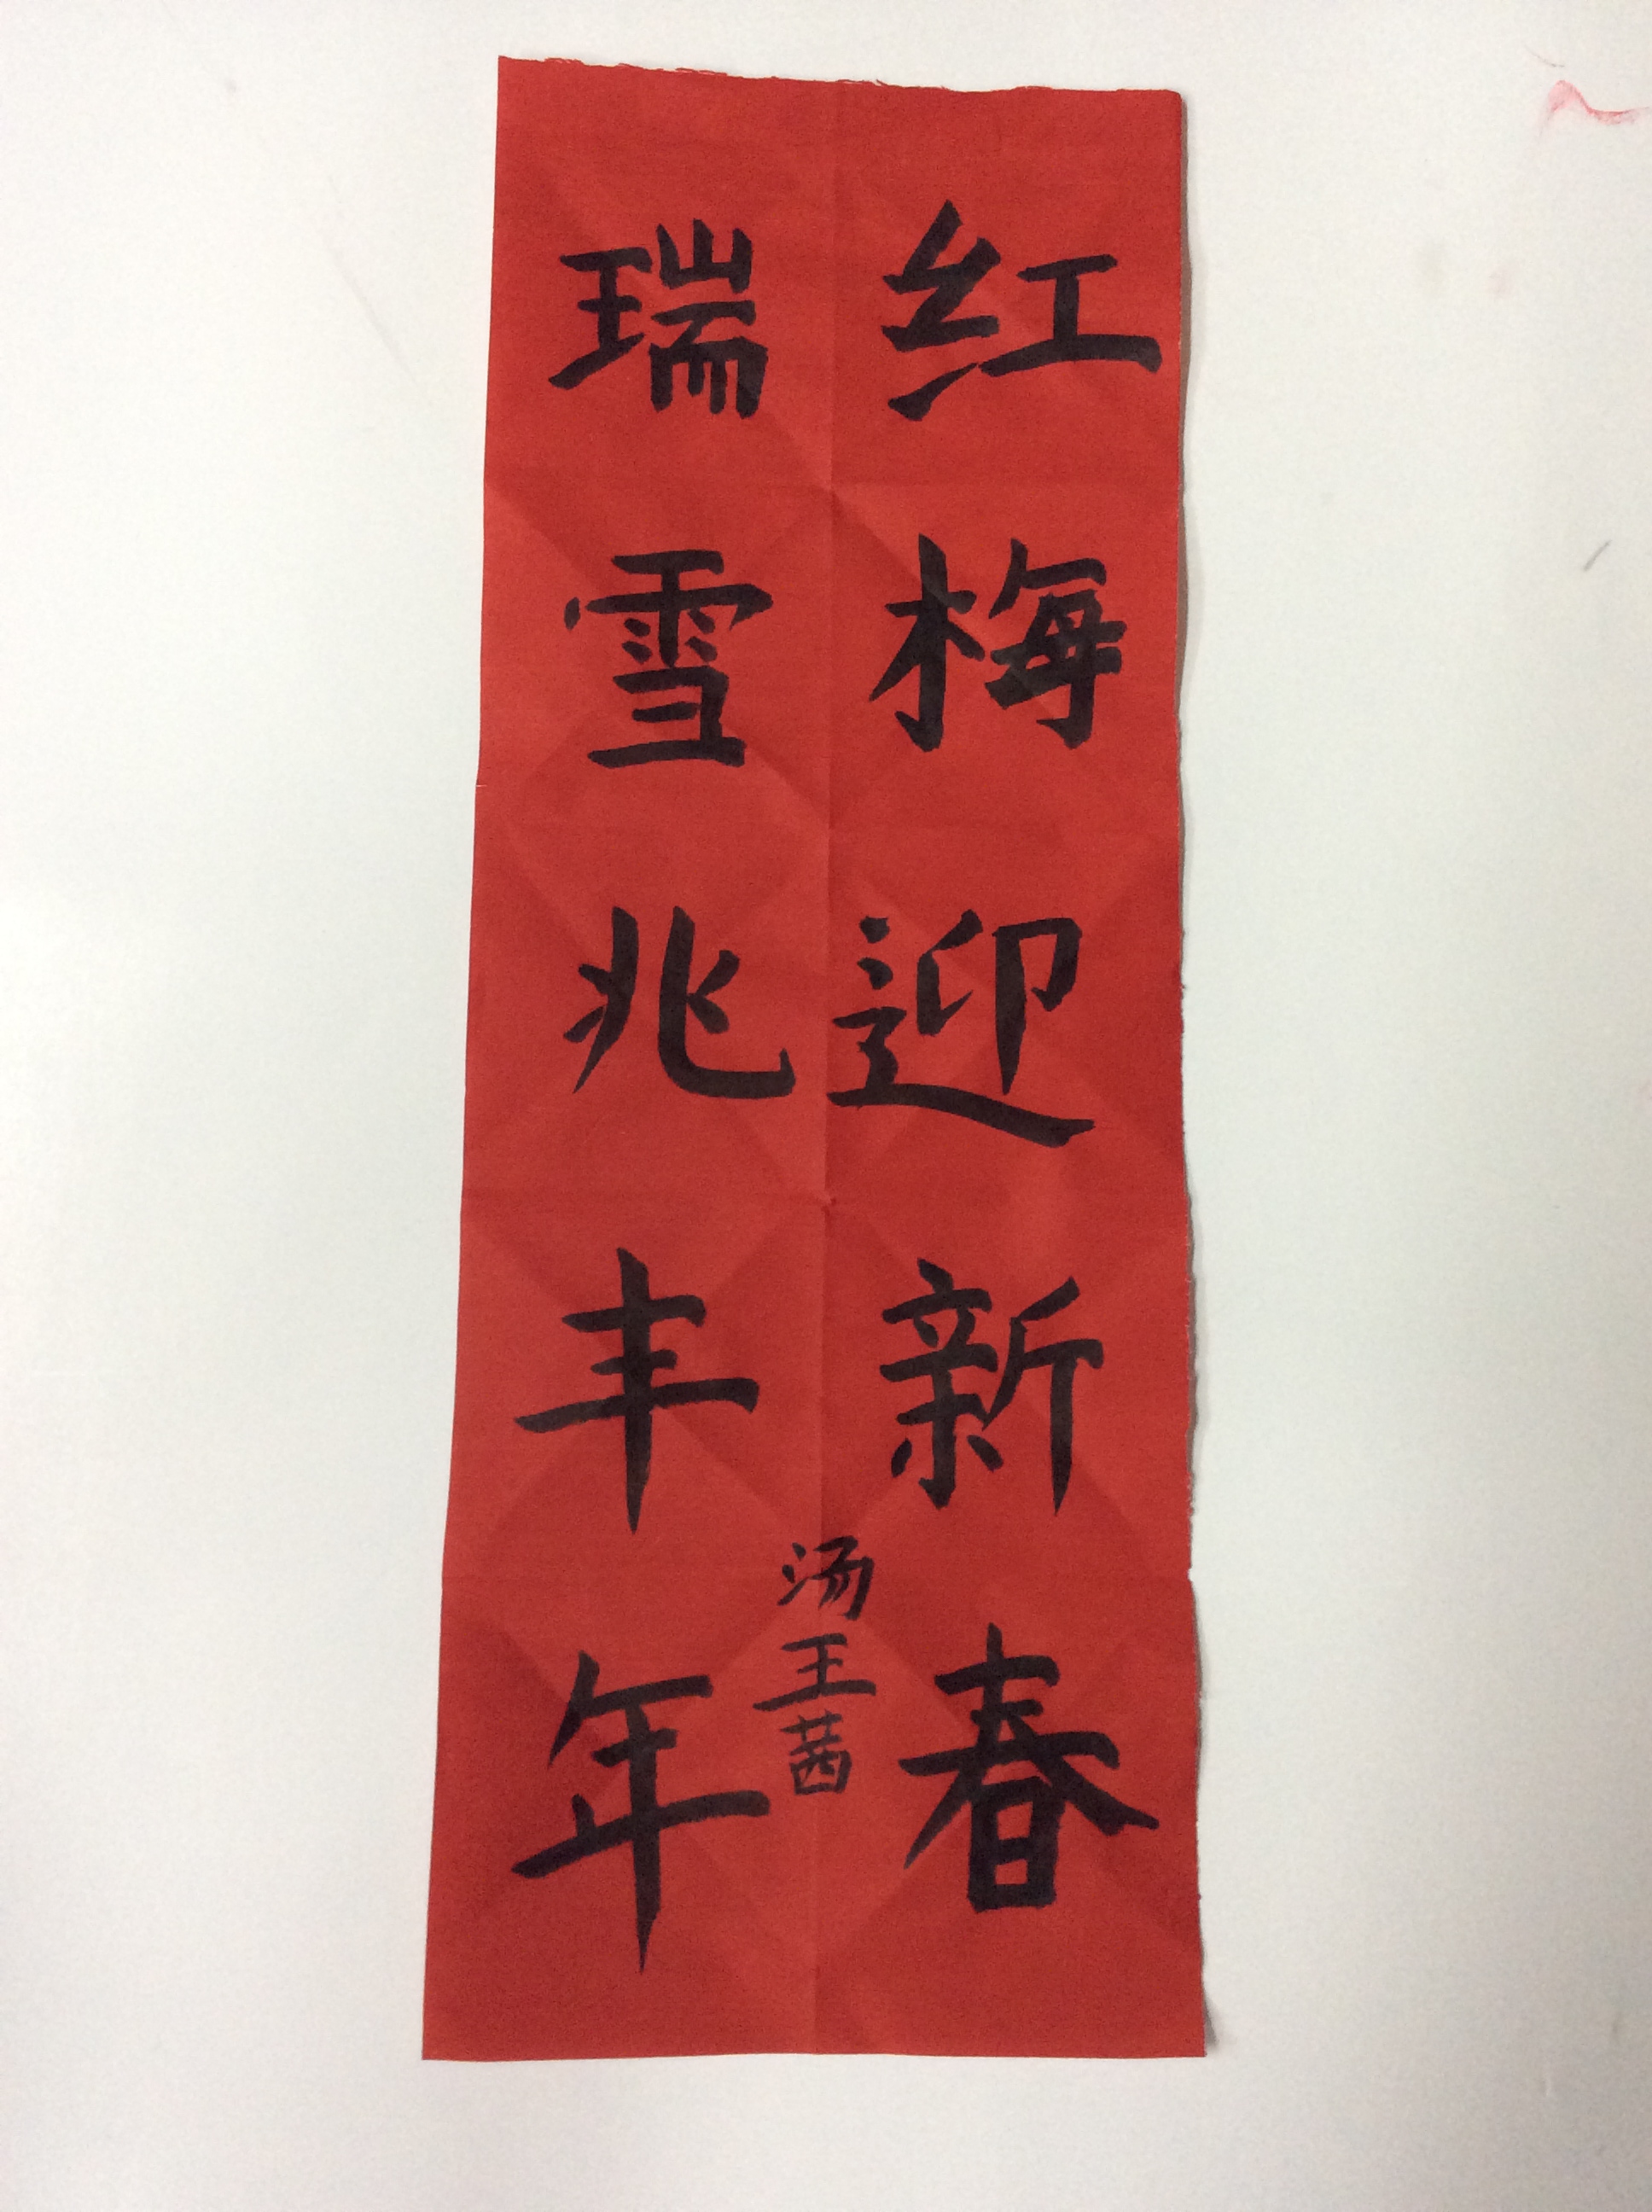 红梅迎新春
瑞雪兆丰年
汤王茜